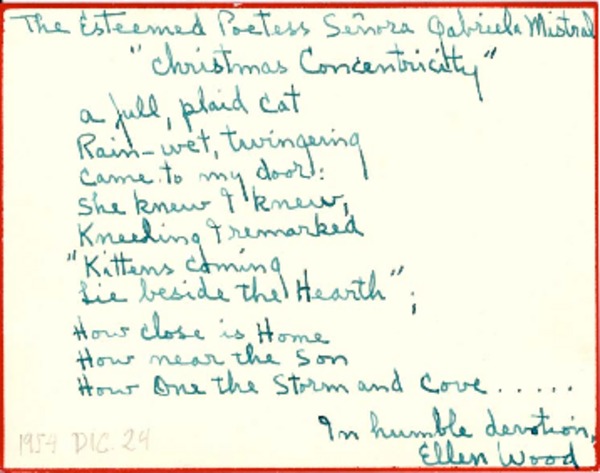 The Esteemed Poetess Señora Gabriela Mistral
"Christmas Concentricity"
a full, plaid cat
Rain-wet, twingering
came to my door:
She knew I knew,
Kneeling I remarked
"Kittens coming
Lie beside the Hearth";
How close is Home
How near the Son
How One the Storm and Cove .....
In humble devotion,
Ellen Wood
1954 DIC. 24